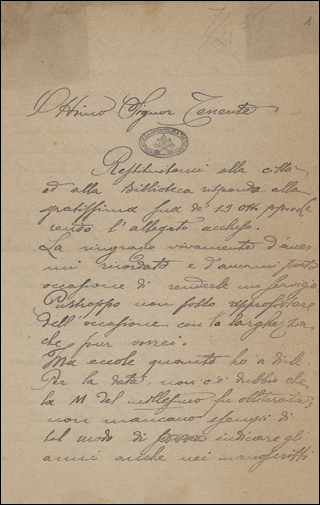 Illmo Signor Tenente
Restituitomi alla città
ed alla Biblioteca rispondo alla
gratissima sua de' 15 ott.
rendo l'allegato accluso.
La ringrazio vivamente d'aver
mi ricordato e d'avermi porto
occasione di renderle un servigio
Purtroppo non posso approfittare
dell'occasione con la larghezza,
che pur vorrei.
Ma eccole quanto ho a dirle
Per la data, non c'è dubbio che
la M del millesimo fu obliterata;
non mancano esempii di
tal modo di indicare gli
anni anche nei manoscritti